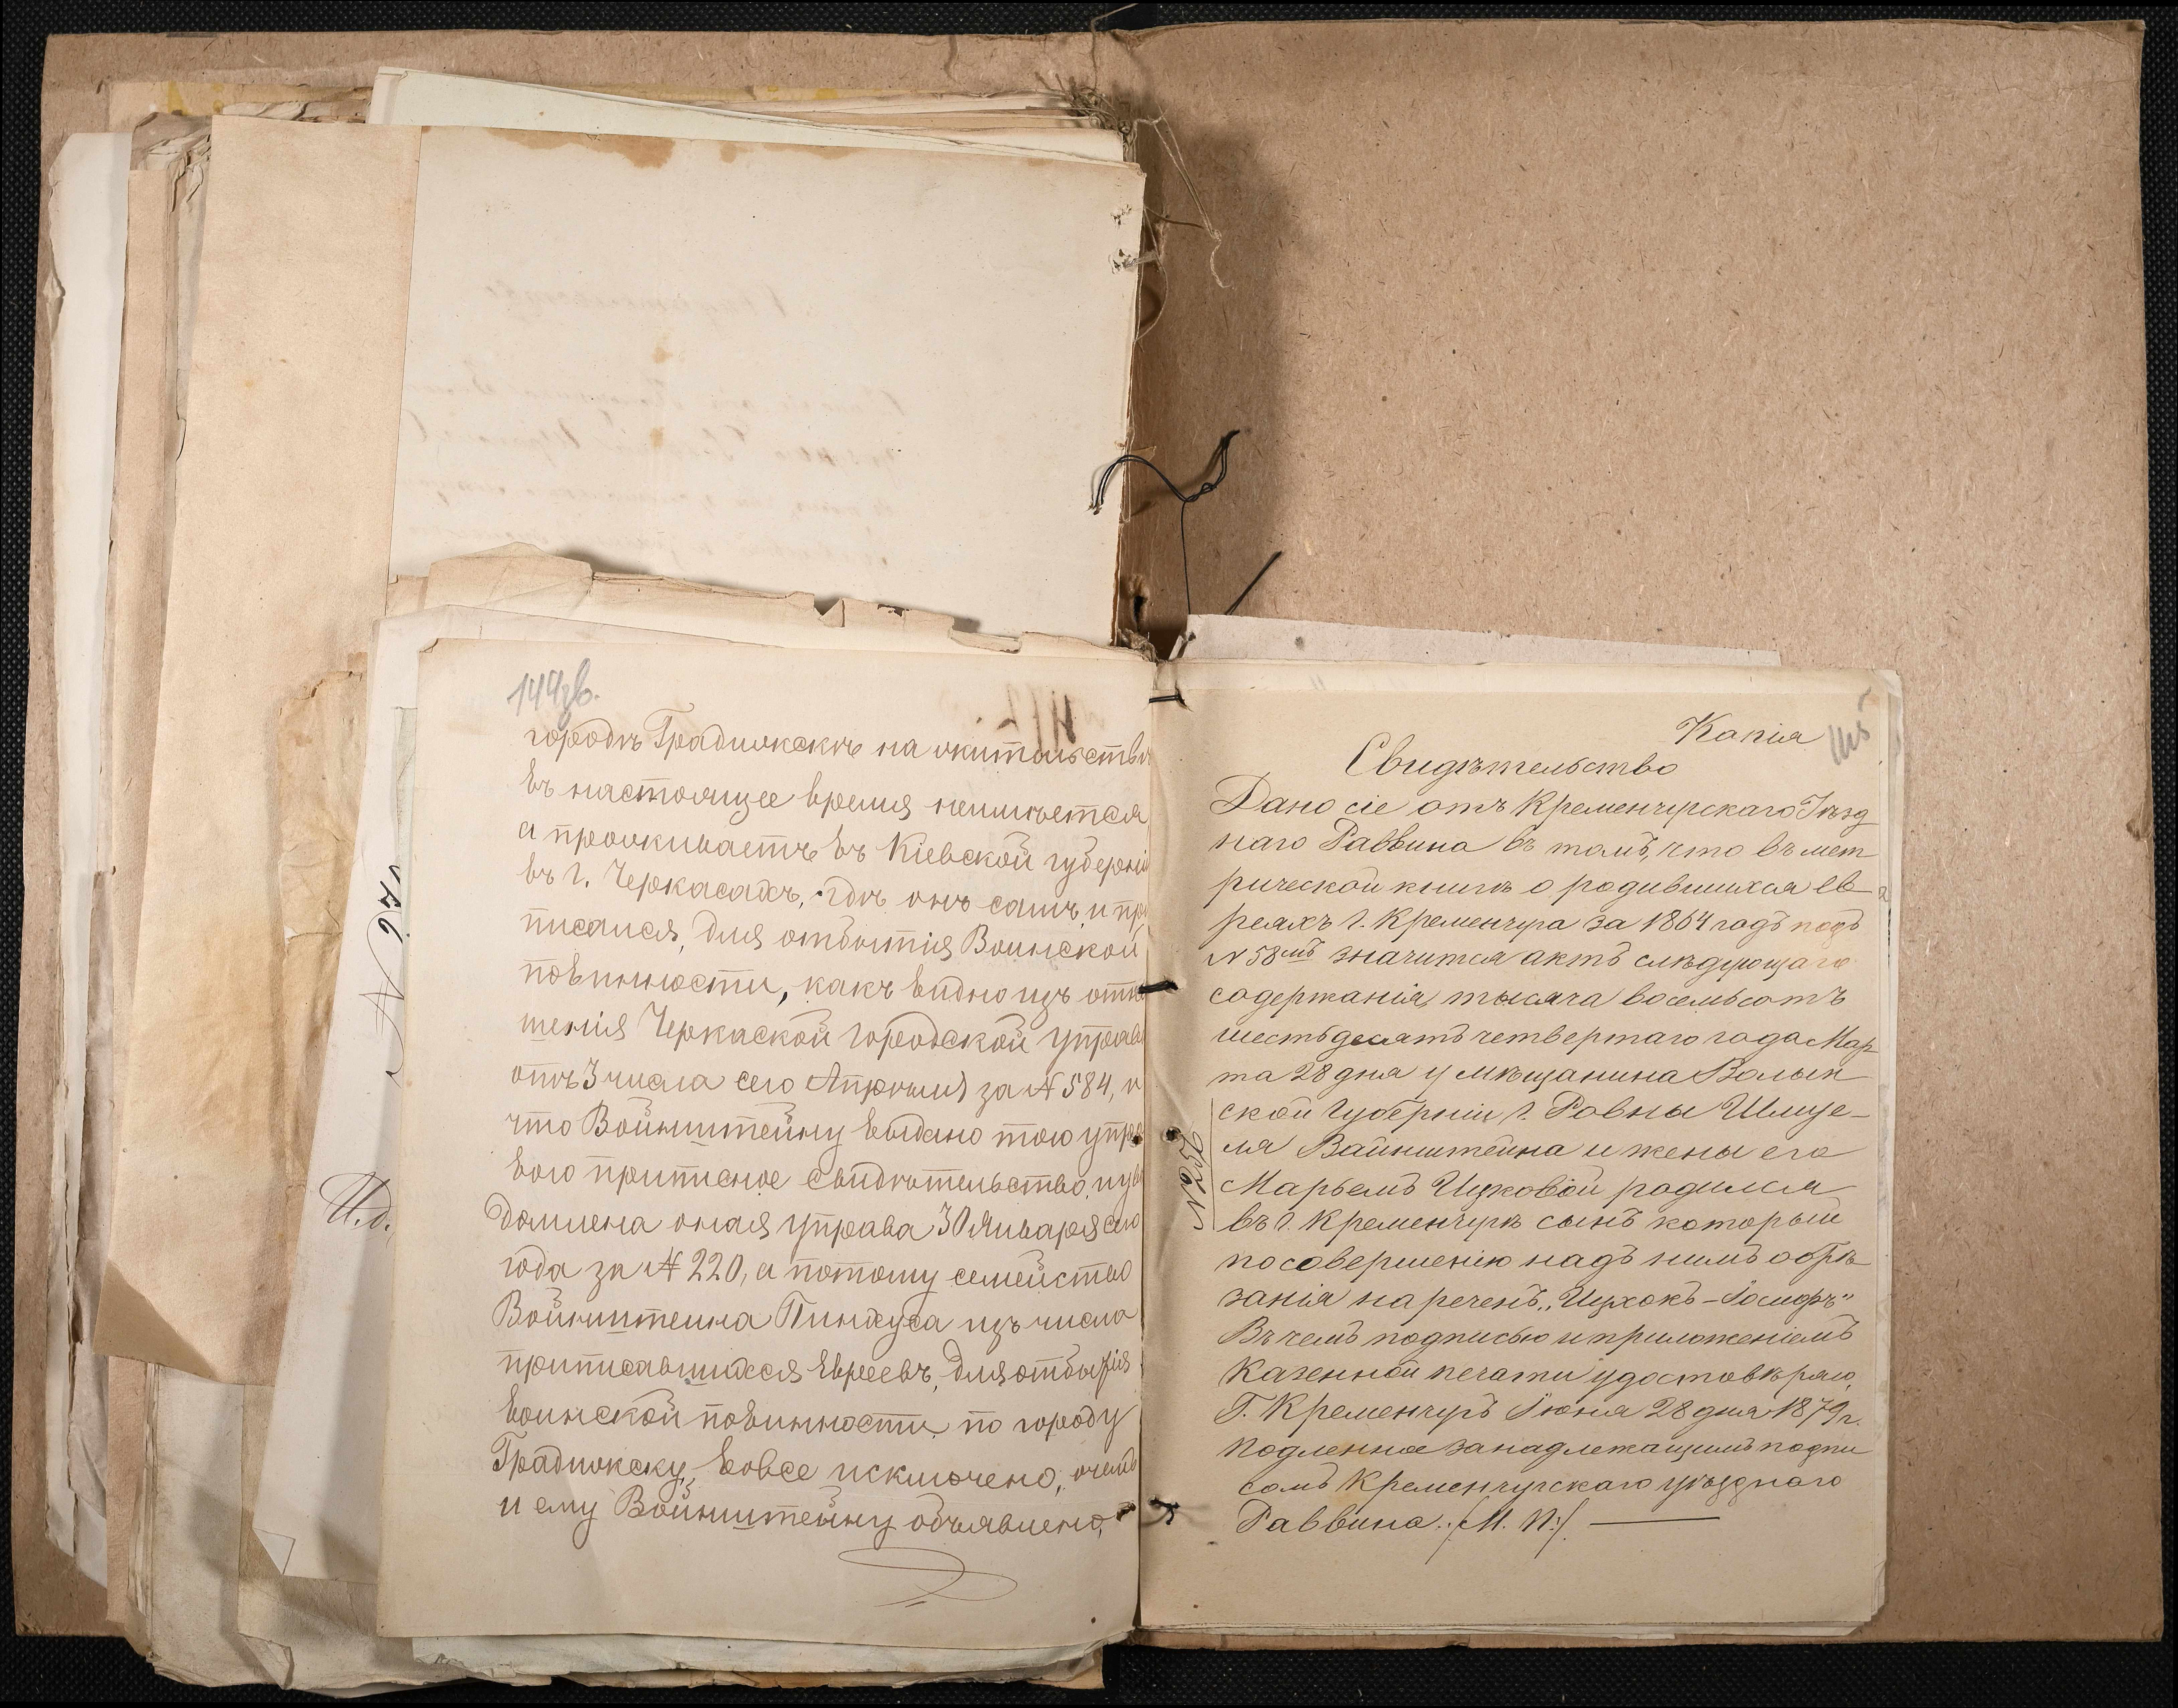 144об.
городѣ Градижскѣ на жительствѣ
въ настоящее время неимѣется,
а проживаетъ въ Кіевской губерніи
въ г. Черкасахъ, гдѣ онъ самъ и при
писался, для отбытія Воинской
повинности, какъ видно изъ отно
шенія Черкаской городской управы
отъ 3 числа сего Апрѣля за № 584, и
что Войнштейну выдано тою упра
вою приписное свидѣтельство, изъ
домлена оная управа 30 Января сего
года за № 220, а потому семейство
Войнштеина Пинхуса изъ числа
приписавшихся Евреевъ, для отбытія
воинской повинности по городу
Градижску, вовсе исключено, очемъ
и ему Войнштейну объявлено,
№ 27
И.д.
145
Копія
Свидѣтельство
Дано сіе отъ Кременчугскаго Уѣзд
наго Раввина въ томъ, что въ мет
рической книгѣ о родившихся ев
реяхъ г. Кременчуга за 1864 годъ подъ
№ 58мъ значится актъ слѣдующаго
содержанія, тысяча восемьсотъ
шестьдесятъ четвертаго года Мар
та 28 дня у мѣщанина Волын
ской Губерніи г. Ровны Шмуе-
ля Вайнштейна и жены его
Марьемъ Ицковой родился
въ г. Кременчугѣ сынъ который
по совершенію надъ нимъ обрѣ
занія нареченъ „Ицхокъ-Іосифъ"
Въ чемъ подписью и приложеніемъ
Казенной печати удостовѣряю,
Г. Кременчугъ Іюня 28 дня 1879 г.
Подленное занадлежащимъ подпи
сомъ Кременчугскаго уѣзднаго
Раввина. /М. П./
№ 252